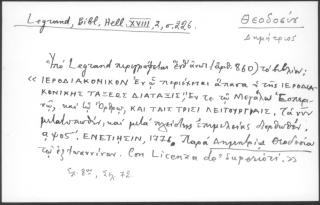 Legrand, Bibl. Hell. XVIII, 2, σ. 226.
Θεοδοσίου
Δημήτριος
Ὑπὸ Legrand περιγράφεται (ἀρ. 860) τὸ βιβλίον:
« ΙΕΡΟΔΙΑΚΟΝΙΚΟΝ Ἐν ᾧ περιέχεται ἅπασα ἡ τῆς ΙΕΡΟΔΙΑ-
ΚΟΝΙΚΗΣ ΤΑΞΕΩΣ ΔΙΑΤΑΞΙΣ Ἔν τε τῷ Μεγάλῳ Ἑσπερι-
νῷ, καὶ τῷ Ὄρθρῳ, ΚΑΙ ΤΑΙΣ ΤΡΙΣΙ ΛΕΙΤΟΥΡΓΙΑΙΣ. Τὰ νῦν
μετατυπωθὲν, καὶ μετὰ πλείστης ἐπιμελείας διορθωθέν.
ΕΝΕΤΙΗΣΙΝ, 1775. Παρὰ Δημητρίῳ Θεοδοσίου
τῷ ἐξ Ἰωαννίνων. Con Licenza de' Superiori. »
Σχ. 8ον, Σελ. 72.